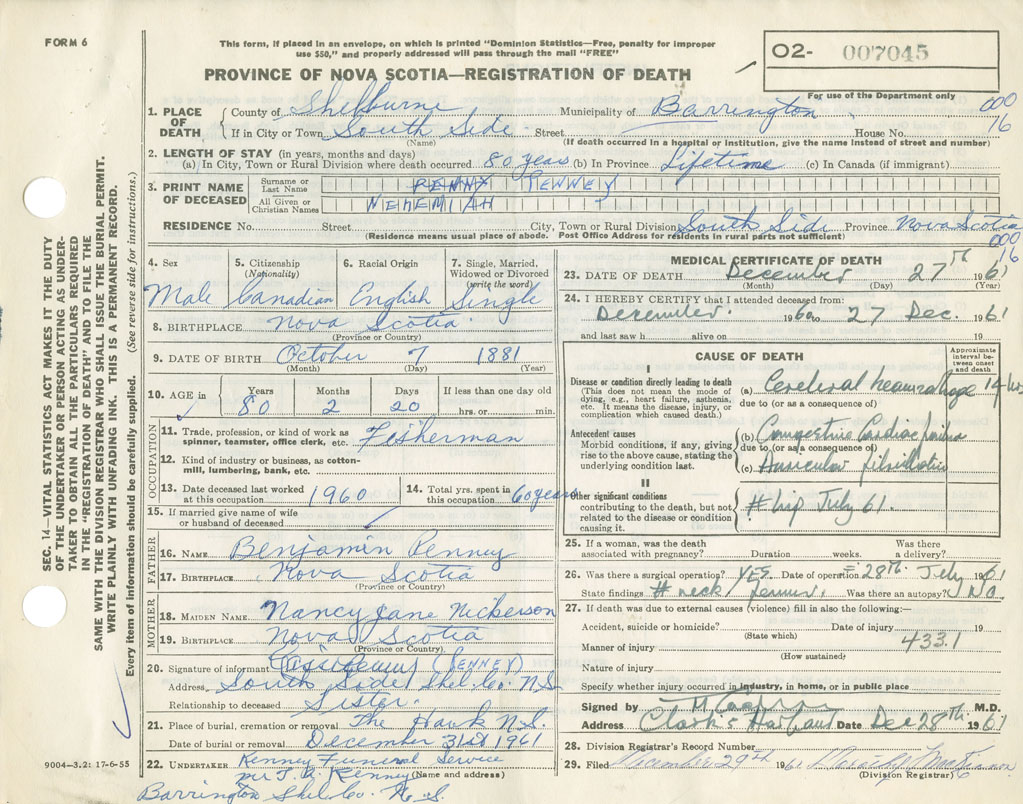 FORM 6
This form, if placed in an envelope, on which is printed "Dominion Statistics—Free, penalty for improper
use $50," and properly addressed will pass through the mail "FREE"
PROVINCE OF NOVA SCOTIA—REGISTRATION OF DEATH
02- 007045
For use of the Department only
1. PLACE OF DEATH County of Shelburne Municipality of Barrington 000
If in City or Town South Side Street House No. 16
(Name) (If death occurred in a hospital or institution, give the name instead of street and number)
2. LENGTH OF STAY (in years, months and days)
(a) In City, Town or Rural Division where death occurred 80 years (b) In Province Lifetime (c) In Canada (if immigrant)
3. PRINT NAME OF DECEASED Surname or Last Name PENNY PENNEY
All Given or Christian Names NEHEMIAH
RESIDENCE No. Street City, Town or Rural Division South Side Province Nova Scotia
(Residence means usual place of abode. Post Office Address for residents in rural parts not sufficient)
000
16
4. Sex 5. Citizenship (Nationality) 6. Racial Origin 7. Single, Married, Widowed or Divorced (write the word)
Male Canadian English Single
8. BIRTHPLACE Nova Scotia
(Province or Country)
9. DATE OF BIRTH October 7 1881
(Month) (Day) (Year)
10. AGE in Years Months Days If less than one day old
80 2 20 hrs. or min.
OCCUPATION
11. Trade, profession, or kind of work as
spinner, teamster, office clerk, etc. Fisherman
12. Kind of industry or business, as cotton-
mill, lumbering, bank, etc.
13. Date deceased last worked at this occupation 1960 14. Total yrs. spent in this occupation 60 years
15. If married give name of wife
or husband of deceased
FATHER
16. NAME Benjamin Penney
17. BIRTHPLACE Nova Scotia
(Province or Country)
MOTHER
18. MAIDEN NAME Nancy Jane Nickerson
19. BIRTHPLACE Nova Scotia
(Province or Country)
20. Signature of informant (PENNEY)
Address South Side Shel. Co. N.S.
Relationship to deceased Sister
21. Place of burial, cremation or removal The Hawk N.S.
Date of burial or removal December 31st 1961
22. UNDERTAKER Kenney Funeral Service
per J. B. Kenney (Name and address)
Barrington Shel. Co. N.S.
9004—3.2: 17-6-55
MEDICAL CERTIFICATE OF DEATH
23. DATE OF DEATH December 27th 1961
(Month) (Day) (Year)
24. I HEREBY CERTIFY that I attended deceased from:
December 1960 to 27 Dec. 1961
and last saw h alive on 19
CAUSE OF DEATH
Approximate interval between onset and death
I
Disease or condition directly leading to death
(This does not mean the mode of
dying, e.g., heart failure, asthenia,
etc. It means the disease, injury, or
complication which caused death.)
(a) Cerebral heamorrhage 14 hrs
due to (or as a consequence of)
Antecedent causes
Morbid conditions, if any, giving
rise to the above cause, stating the
underlying condition last.
(b) Congestive Cardiac failure
due to (or as a consequence of)
(c) Auricular fibrillation
II
Other significant conditions
contributing to the death, but not
related to the disease or condition
causing it.
# hip July 61.
25. If a woman, was the death associated with pregnancy? Duration weeks. Was there a delivery?
26. Was there a surgical operation? YES. Date of operation 28th. July 1961
State findings # neck femur. Was there an autopsy? NO.
27. If death was due to external causes (violence) fill in also the following:—
Accident, suicide or homicide? Date of injury 19
(State which)
Manner of injury 433.1
(How sustained)
Nature of injury
Specify whether injury occurred in industry, in home, or in public place
Signed by M.D.
Address Clark's Harbour Date Dec 28th. 1961
28. Division Registrar's Record Number
29. Filed December 29th 1961
(Division Registrar)
SEC. 14—VITAL STATISTICS ACT MAKES IT THE DUTY
OF THE UNDERTAKER OR PERSON ACTING AS UNDER-
TAKER TO OBTAIN ALL THE PARTICULARS REQUIRED
IN THE "REGISTRATION OF DEATH" AND TO FILE THE
SAME WITH THE DIVISION REGISTRAR WHO SHALL ISSUE THE BURIAL PERMIT.
WRITE PLAINLY WITH UNFADING INK. THIS IS A PERMANENT RECORD.
Every item of information should be carefully supplied. (See reverse side for instructions.)